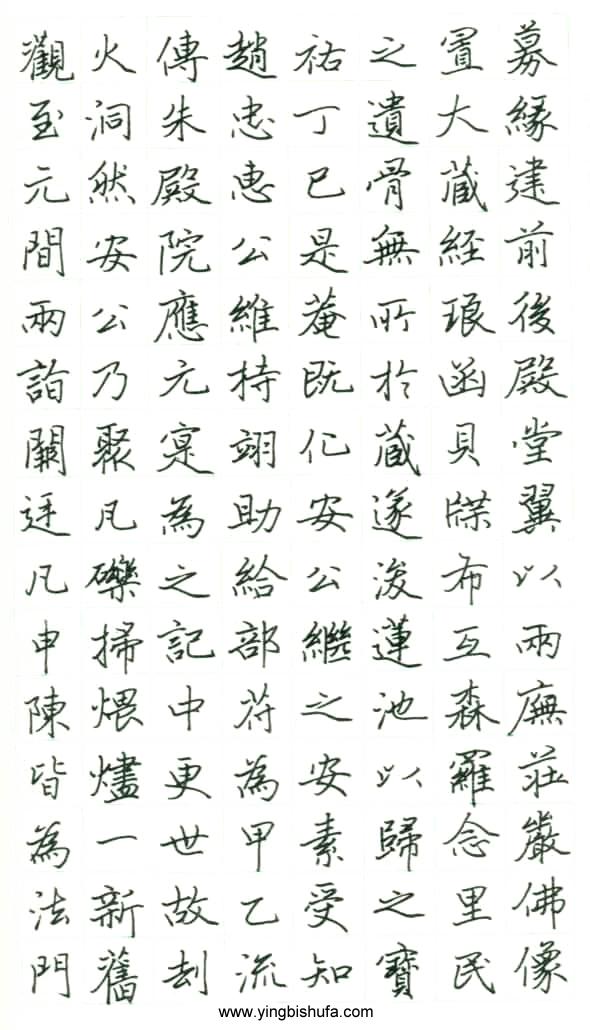 募緣建前後殿堂翼以兩廡莊嚴佛像
置大藏經琅函貝牒布互森羅念里民
之遺骨無所於藏遂浚蓮池以歸之寶
祐丁巳是菴既化安公繼之安素受知
趙忠惠公維持翊助給部符為甲乙流
傳朱殿院應元寔為之記中更世故刦
火洞然安公乃聚凡礫掃煨燼一新舊
觀至元間兩詣闕廷凡申陳皆為法門
www.yingbishufa.com